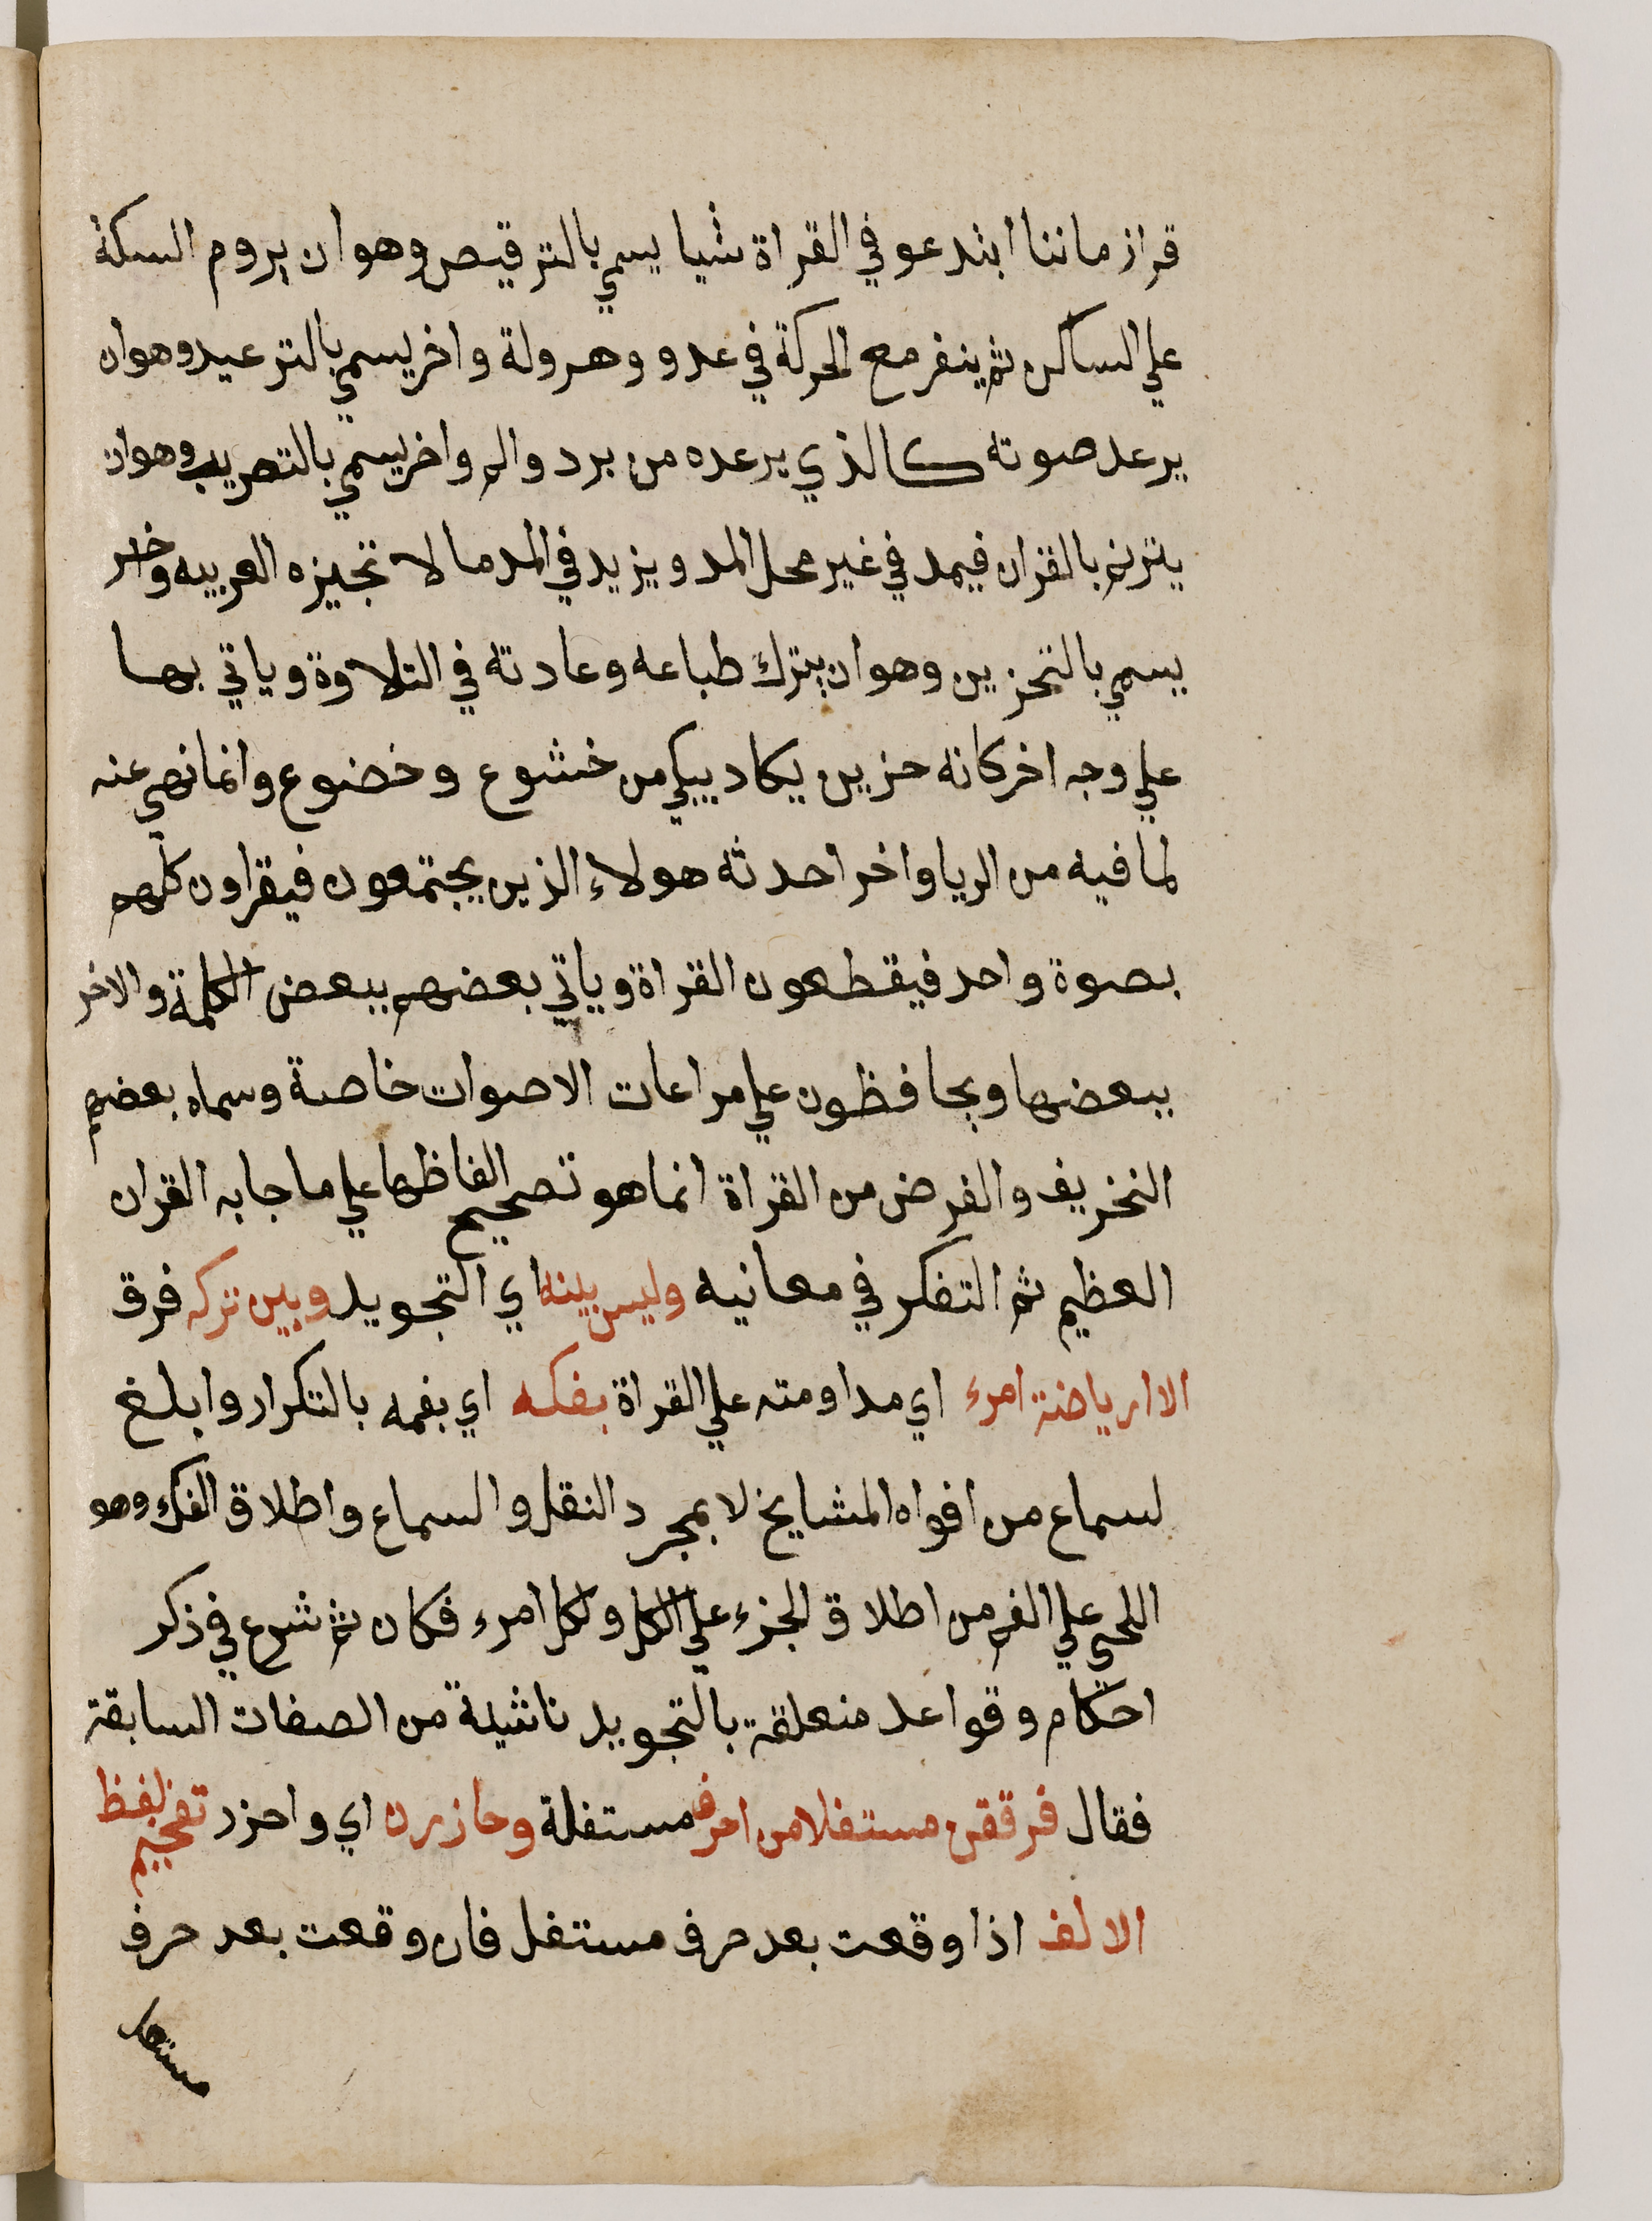 قرا زماننا ابتدعو في القراة شيا يسمي بالترقيص وهو ان يروم السكتة
علي الساكن ثم ينفر مع الحركة في عدو وهرولة واخر يسمي بالترعيد وهوان
يرعد صوته كالذي يرعده من برد والم واخر يسمي بالتصريب وهوان
يترنم بالقران فيمد في غير محل المد ويزيد في المد ما لا تجيزه العربيه واخر
يسمي بالتحزين وهو ان يترك طباعه وعادته في التلاوة وياتي بها
علي وجه اخر كانه حزين يكاد يبكي من خشوع وخضوع وانما نهي عنه
لما فيه من الريا واخر احدثه هولاء الذين يجتمعون فيقراون كلهم
بصوة واحد فيقطعون القراة وياتي بعضهم ببعض الكلمة والاخر
ببعضها ويحافظون علي مراعات الاصوات خاصة وسماه بعضهم
التخريف والفرض من القراة انما هو تصحيح الفاظها علي ما جا به القران
العظيم ثم التفكر في معانيه وليس بينه اي التجويد وبين تركه فرق
الا ارياضة امرء اي مداومته علي القراة بفكه اي بفمه بالتكرار وابلغ
لسماع من افواه المشايخ لا بمجرد النقل والسماع واطلاق الفك وهو
اللحي علي الفم من اطلاق الجزء علي الكل ولكل امرء فكان ثم شرع في ذكر
احكام وقواعد متعلقة بالتجويد ناشية من الصفات السابقة
فقال فرققن مستفلا من احرف مستفلة وحاذرن اي واحزر تفخيم لفظ
الالف اذا وقعت بعد حرف مستفل فان وقعت بعد حرف
مستعل